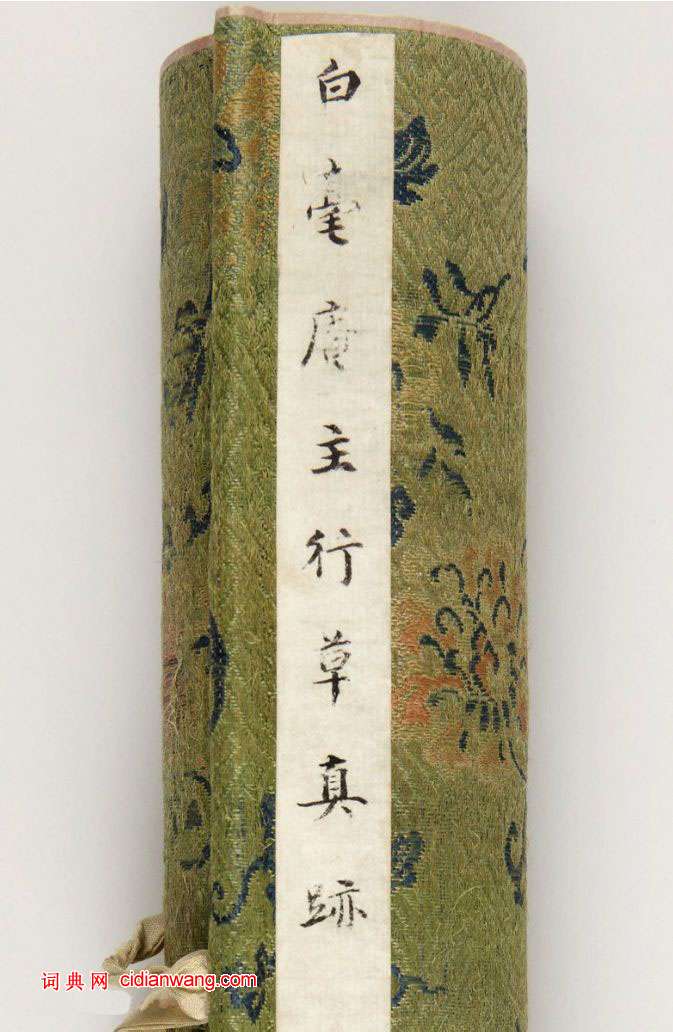 白毫庵主行草真跡
词典网 cidianwang.com